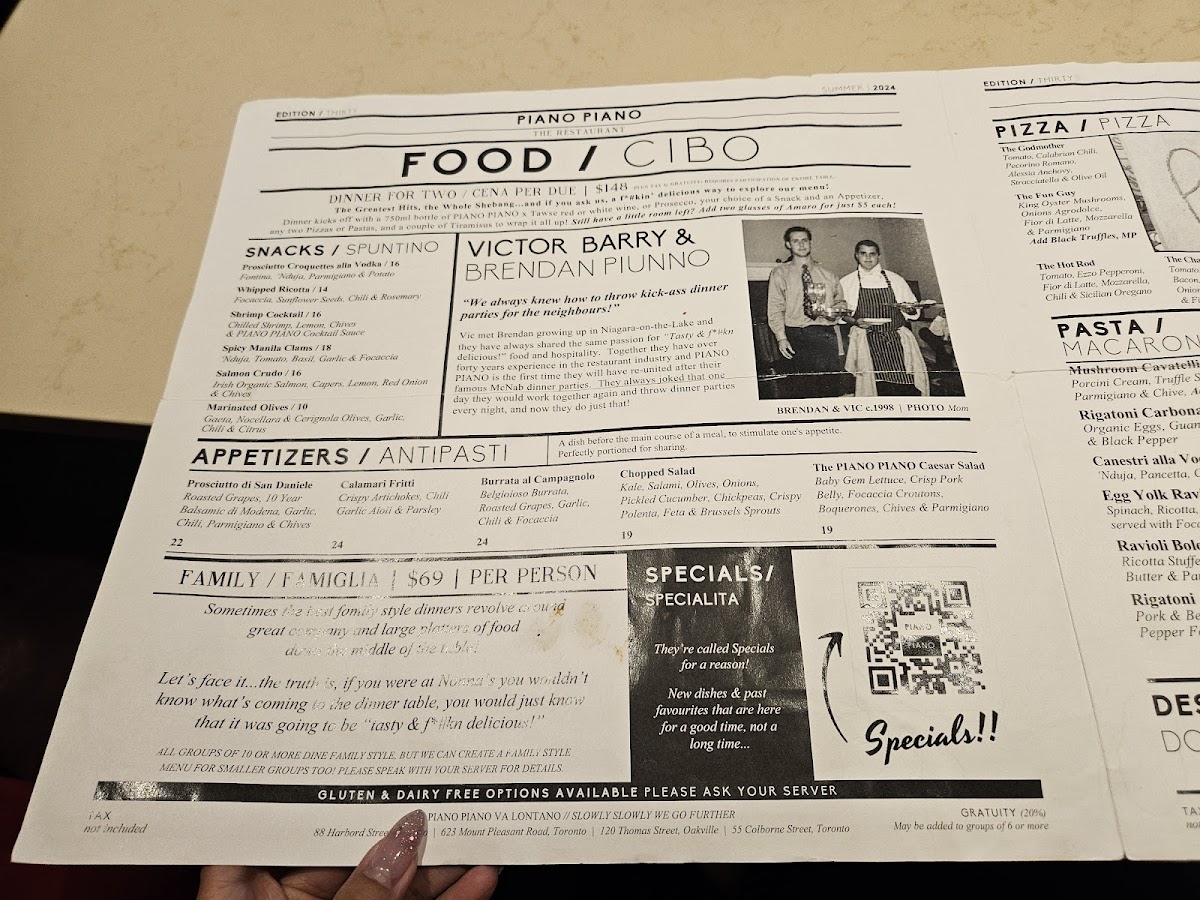 EDITION / THIRTY
SUMMER | 2024
PIANO PIANO
THE RESTAURANT
FOOD / CIBO
DINNER FOR TWO / CENA PER DUE | $148 PLUS TAX & GRATUITY; REQUIRES PARTICIPATION OF ENTIRE TABLE.
The Greatest Hits, the Whole Shebang...and if you ask us, a f*#kin' delicious way to explore our menu!
Dinner kicks off with a 750ml bottle of PIANO PIANO x Tawse red or white wine, or Prosecco, your choice of a Snack and an Appetizer,
any two Pizzas or Pastas, and a couple of Tiramisus to wrap it all up! Still have a little room left? Add two glasses of Amaro for just $5 each!
SNACKS / SPUNTINO
Prosciutto Croquettes alla Vodka / 16
Fontina, 'Nduja, Parmigiano & Potato
Whipped Ricotta / 14
Focaccia, Sunflower Seeds, Chili & Rosemary
Shrimp Cocktail / 16
Chilled Shrimp, Lemon, Chives
& PIANO PIANO Cocktail Sauce
Spicy Manila Clams / 18
'Nduja, Tomato, Basil, Garlic & Focaccia
Salmon Crudo / 16
Irish Organic Salmon, Capers, Lemon, Red Onion
& Chives
Marinated Olives / 10
Gaeta, Nocellara & Cerignola Olives, Garlic,
Chili & Citrus
VICTOR BARRY &
BRENDAN PIUNNO
"We always knew how to throw kick-ass dinner
parties for the neighbours!"
Vic met Brendan growing up in Niagara-on-the-Lake and
they have always shared the same passion for "Tasty & f*#kn
delicious!" food and hospitality. Together they have over
forty years experience in the restaurant industry and PIANO
PIANO is the first time they will have re-united after their
famous McNab dinner parties. They always joked that one
day they would work together again and throw dinner parties
every night, and now they do just that!
BRENDAN & VIC c.1998 | PHOTO Mom
APPETIZERS / ANTIPASTI
A dish before the main course of a meal, to stimulate one's appetite.
Perfectly portioned for sharing.
Prosciutto di San Daniele
Roasted Grapes, 10 Year
Balsamic di Modena, Garlic,
Chili, Parmigiano & Chives
22
Calamari Fritti
Crispy Artichokes, Chili
Garlic Aioii & Parsley
24
Burrata al Campagnolo
Belgioioso Burrata,
Roasted Grapes, Garlic,
Chili & Focaccia
24
Chopped Salad
Kale, Salami, Olives, Onions,
Pickled Cucumber, Chickpeas, Crispy
Polenta, Feta & Brussels Sprouts
19
The PIANO PIANO Caesar Salad
Baby Gem Lettuce, Crisp Pork
Belly, Focaccia Croutons,
Boquerones, Chives & Parmigiano
19
FAMILY / FAMIGLIA | $69 | PER PERSON
Sometimes the best family style dinners revolve around
great company and large platters of food
down the middle of the table!
Let's face it...the truth is, if you were at Nonna's you wouldn't
know what's coming to the dinner table, you would just know
that it was going to be "tasty & f*#kn delicious!"
ALL GROUPS OF 10 OR MORE DINE FAMILY STYLE, BUT WE CAN CREATE A FAMILY STYLE
MENU FOR SMALLER GROUPS TOO! PLEASE SPEAK WITH YOUR SERVER FOR DETAILS.
SPECIALS/
SPECIALITA
They're called Specials
for a reason!
New dishes & past
favourites that are here
for a good time, not a
long time...
PIANO
PIANO
Specials!!
GLUTEN & DAIRY FREE OPTIONS AVAILABLE PLEASE ASK YOUR SERVER
TAX
not included
PIANO PIANO VA LONTANO // SLOWLY SLOWLY WE GO FURTHER
88 Harbord Street | 623 Mount Pleasant Road, Toronto | 120 Thomas Street, Oakville | 55 Colborne Street, Toronto
GRATUITY (20%)
May be added to groups of 6 or more
EDITION / THIRTY
PIZZA / PIZZA
The Godmother
Tomato, Calabrian Chili,
Pecorino Romano,
Alessia Anchovy,
Stracciatella & Olive Oil
The Fun Guy
King Oyster Mushrooms,
Onions Agrodolce,
Fior di Latte, Mozzarella
& Parmigiano
Add Black Truffles, MP
The Hot Rod
Tomato, Ezzo Pepperoni,
Fior di Latte, Mozzarella,
Chili & Sicilian Oregano
The Cha
Tomato
Bacon,
Onion
& F
PASTA /
MACARON
Mushroom Cavatelli
Porcini Cream, Truffle S
Parmigiano & Chive, A
Rigatoni Carbona
Organic Eggs, Guan
& Black Pepper
Canestri alla Vo
'Nduja, Pancetta, C
Egg Yolk Rav
Spinach, Ricotta,
served with Foca
Ravioli Bolo
Ricotta Stuffe
Butter & Pa
Rigatoni
Pork & Be
Pepper Fo
DES
DO
TA
no